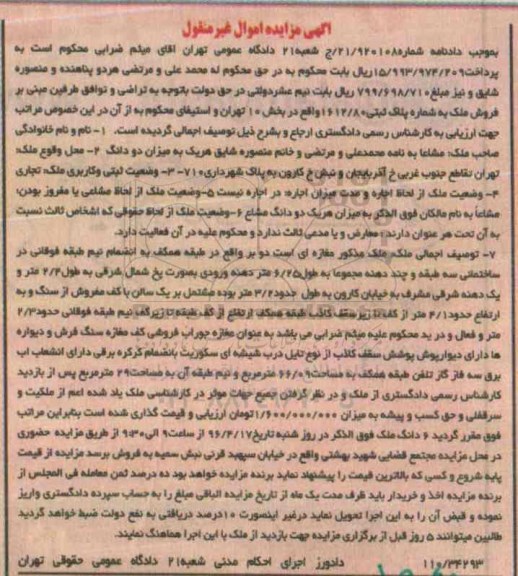 آگهی مزایده اموال غیرمنقول
بموجب دادنامه شماره۹۲۰۱۰۸/۲۱/ج شعبه۲۱ دادگاه عمومی تهران آقای میثم ضرابی محکوم است به
پرداخت۱۵/۹۹۳/۹۷۳/۲۰۹ریال بابت محکوم به در حق محکوم له محمد علی و مرتضی هردو پناهنده و منصوره
شایق و نیز مبلغ۷۹۹/۶۹۸/۷۱۰ ریال بابت نیم عشردولتی در حق دولت باتوجه به تراضی و توافق طرفین مبنی بر
فروش ملک به شماره پلاک ثبتی۱۶۱۲/۸۰واقع در بخش ۱۰ تهران و استیفای محکوم به از آن در این خصوص مراتب
جهت ارزیابی به کارشناس رسمی دادگستری ارجاع و بشرح ذیل توصیف اجمالی گردیده است. ۱- نام و نام خانوادگی
صاحب ملک: مشاعا به نامه محمدعلی و مرتضی و خانم منصوره شایق هریک به میزان دو دانگ ۲- محل وقوع ملک:
تهران تقاطع جنوب غربی خ آذربایجان و نبش خ کارون به پلاک شهرداری۷۱۰ ۳- وضعیت ثبتی وکاربری ملک: تجاری
۴- وضعیت ملک از لحاظ اجاره و مدت میزان اجاره: در اجاره نیست ۵-وضعیت ملک از لحاظ مشاعی یا مفروز بودن:
مشاعا به نام مالکان فوق الذکر به میزان هریک دو دانگ مشاع ۶-وضعیت ملک از لحاظ حقوقی که اشخاص ثالث نسبت
به آن تحت هر عنوان دارند : معارض و یا مدعی ثالث ندارد و محکوم علیه در آن فعالیت دارد.
۷- توصیف اجمالی ملک: ملک مذکور مغازه ای است دو بر واقع در طبقه همکف به انضمام نیم طبقه فوقانی در
ساختمانی سه طبقه و چند دهنه مجموعا به طول۶/۲۵ متر دهنه ورودی بصورت پخ شمال شرقی به طول۲/۴ متر و
یک دهنه شرقی مشرف به خیابان کارون به طول حدود۳/۲ متر بوده مشتمل بر یک سالن با کف مفروش از سنگ و به
ارتفاع حدود۴/۱ متر از کف تا زیرسقف کاذب طبقه همکف ارتفاع از کف طبقه تا زیرکف نیم طبقه فوقانی حدود۲/۳
متر و فعال و در ید محکوم علیه میثم ضرابی می باشد به عنوان مغازه جوراب فروشی کف مغازه سنگ فرش و دیواره
ها دارای دیوارپوش پوشش سقف کاذب از نوع تایل درب شیشه ای سکوریت بانضمام کرکره برقی دارای انشعاب اب
برق سه فاز گاز تلفن طبقه همکف به مساحت۶۶/۰۹ مترمربع و نیم طبقه آن به مساحت۲۹ مترمربع پس از بازدید
کارشناس رسمی دادگستری از ملک و در نظر گرفتن جمیع جهات موثر در کارشناسی ملک یاد شده اعم از ملکیت و
سرقفلی و حق کسب و پیشه به میزان ۱/۶۰۰/۰۰۰/۰۰۰تومان ارزیابی و قیمت گذاری شده است بنابراین مراتب
فوق مقرر گردید ۶ دانگ ملک فوق الذکر در روز شنبه تاریخ۹۶/۴/۱۷ از ساعت۹ الی۹:۳۰ از طریق مزایده حضوری
در محل مزایده مجتمع قضایی شهید بهشتی واقع در خیابان سپهبد قرنی نبش سمیه به فروش برسد مزایده از قیمت
پایه شروع و کسی که بالاترین قیمت را پیشنهاد نماید برنده مزایده خواهد بود ده درصد ثمن معامله فی المجلس از
برنده مزایده اخذ و خریدار باید ظرف مدت یک ماه از تاریخ مزایده الباقی مبلغ را به حساب سپرده دادگستری واریز
نموده و قبض آن را به این اجرا تحویل نماید درغیر اینصورت ۱۰درصد دریافتی به نفع دولت ضبط خواهد گردید
طالبین میتوانند ۵ روز قبل از برگزاری مزایده جهت بازدید از ملک با این اجرا هماهنگ نمایند.
۱۱۰/۳۴۲۹۳ دادورز اجرای احکام مدنی شعبه۲۱ دادگاه عمومی حقوقی تهران